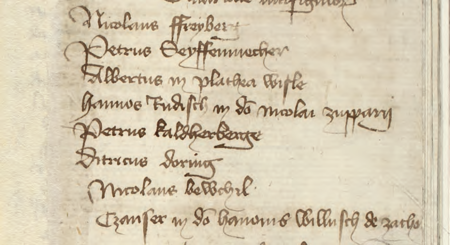 Nicolaus ffreyberg
Petrus Seyffenmecher
Albertus in plathea wisle
hannos Tudisch in do Nicolai zupparij
Petrus kaldherberge
Ditricus doring
Nicolaus bewchil
Czanser in do hanonis willusch de zacho